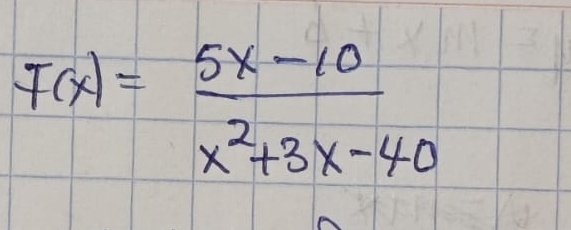 F(x) = 5x - 10
x²+3x-40